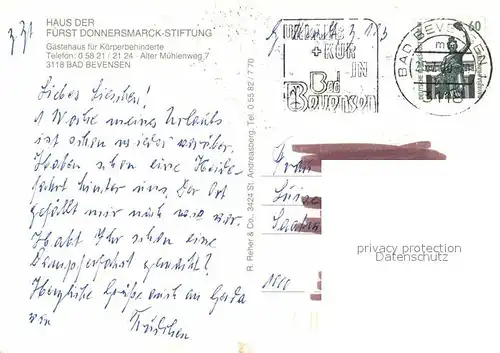 HAUS DER
FÜRST DONNERSMARCK-STIFTUNG
Gästehaus für Körperbehinderte
Telefon: 0 58 21 / 21 24 · Alter Mühlenweg 7
3118 BAD BEVENSEN
Liebes Lieschen!
1 Woche meines Urlaubs
ist schon wieder vorüber.
Haben schon eine Heide-
fahrt hinter uns. Der Ort
gefällt mir nach wie vor.
Habt Ihr schon eine
Dampferfahrt gemacht?
Herzliche Grüße auch an Gerda
von Trudchen
R. Reher & Co., 3424 St. Andreasberg, Tel. 0 55 82 / 7 70
URLAUB
+ KUR
IN
Bad
Bevensen
BAD BEVENSEN
3118
60
Frau
1000
privacy protection
Datenschutz